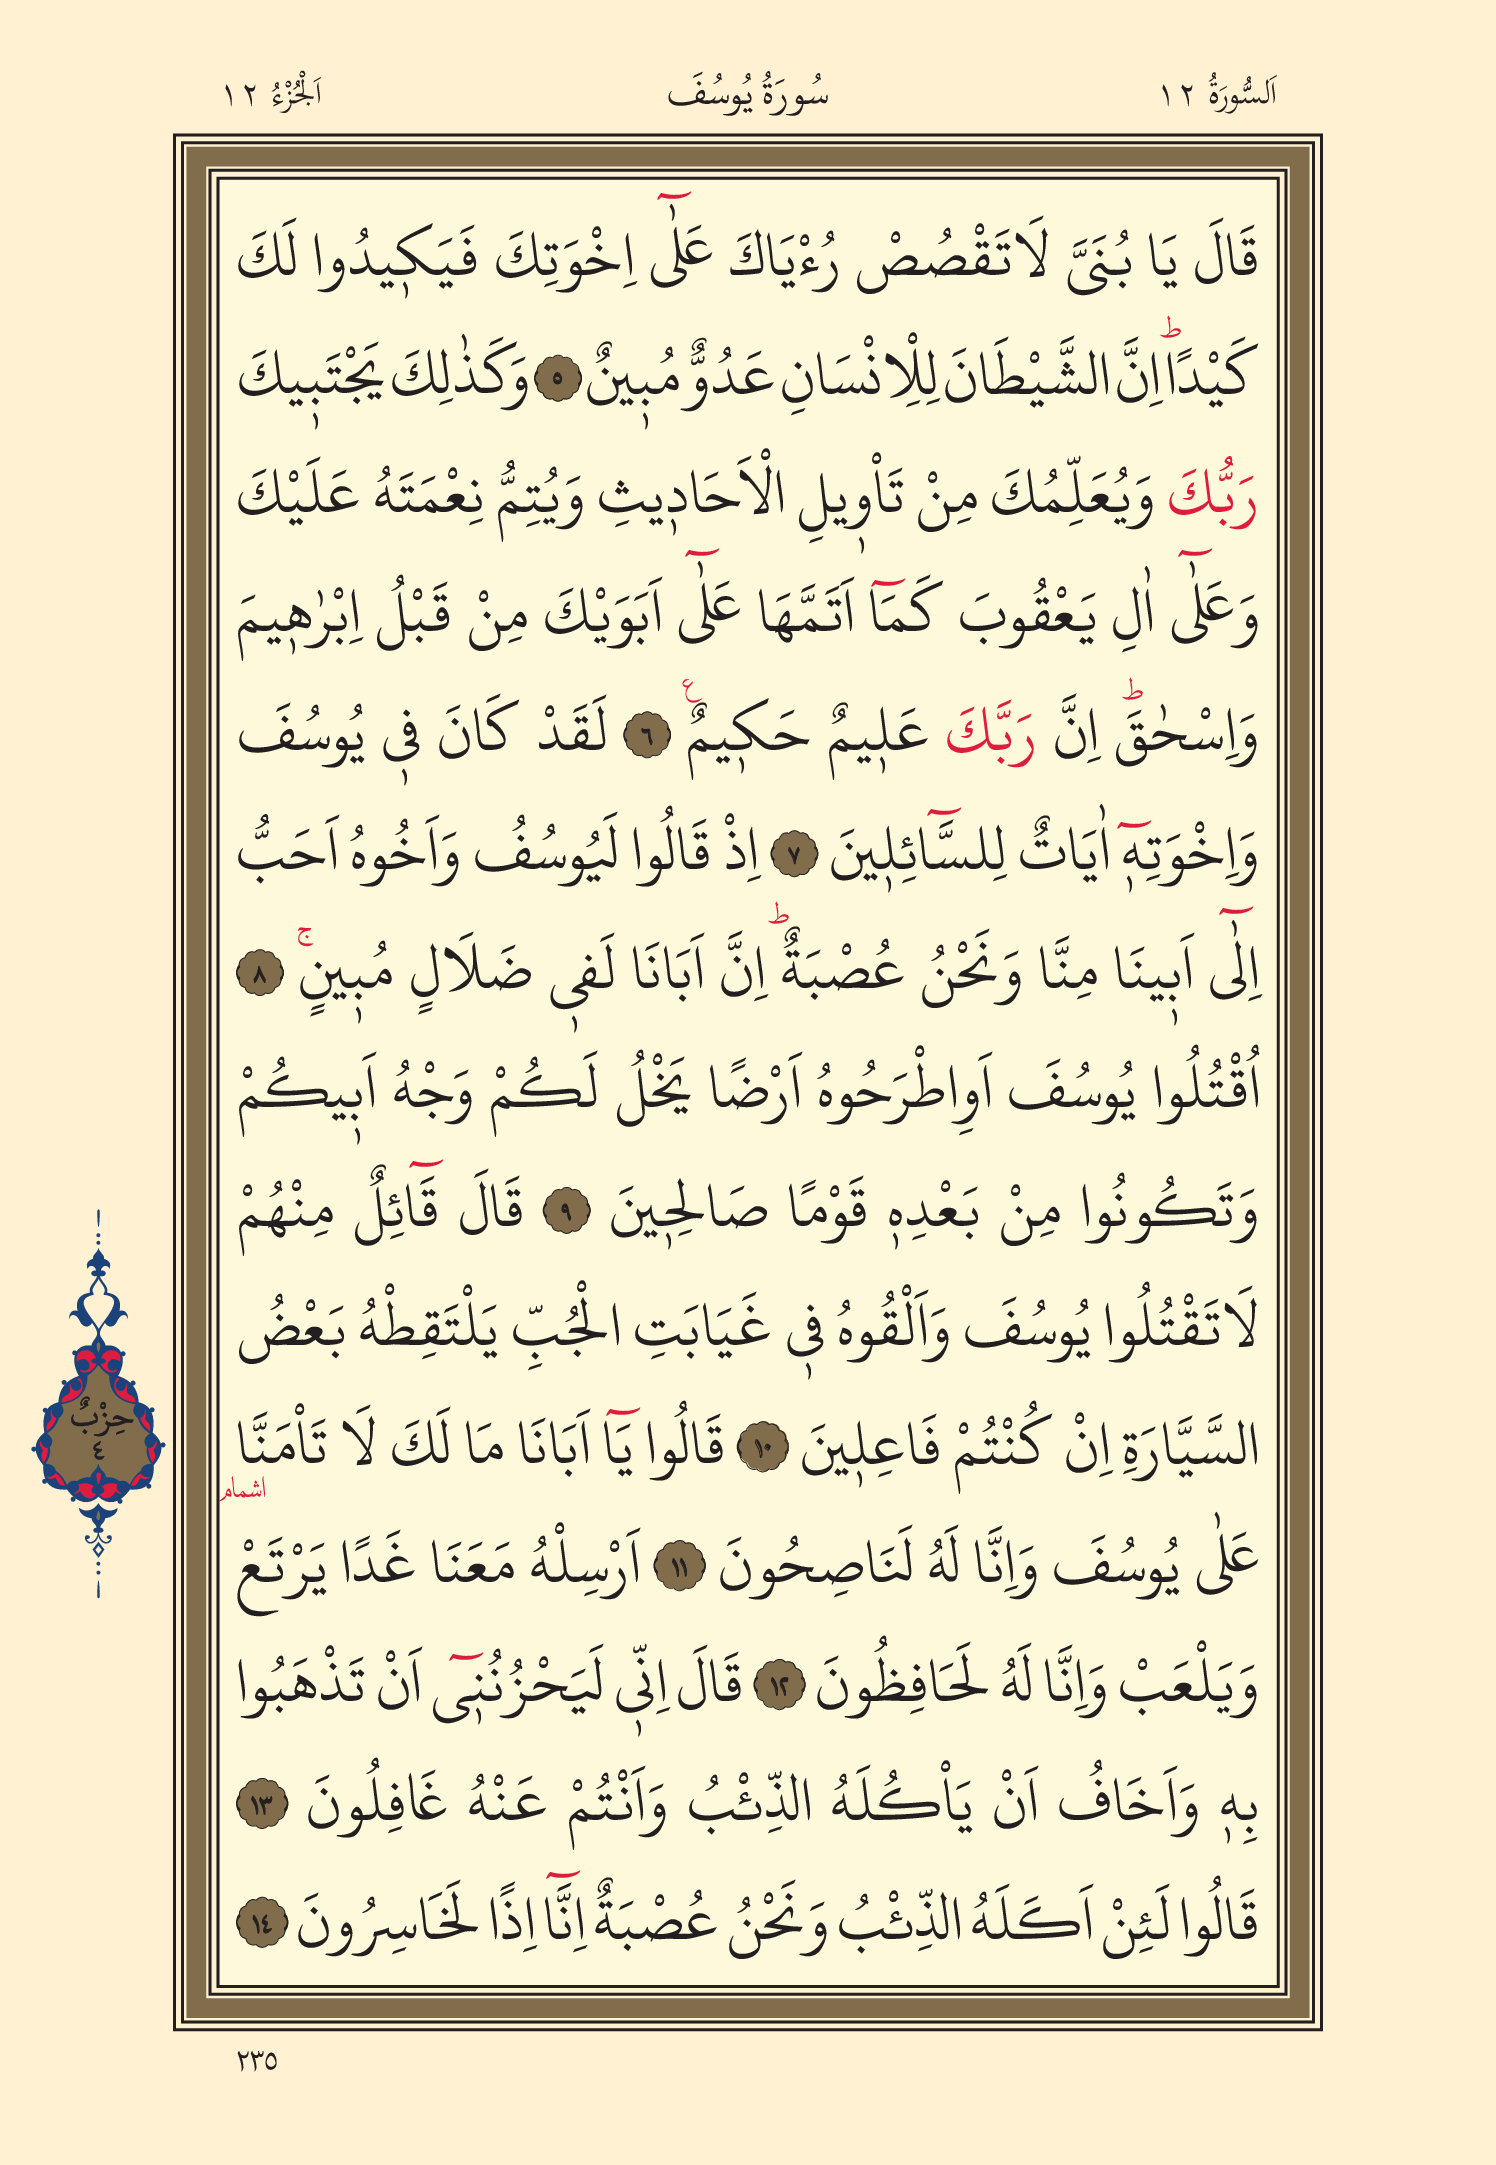 اَلسُّورَةُ ١٢ سُورَةُ يُوسُفَ اَلْجُزْءُ ١٢
قَالَ يَا بُنَىَّ لَا تَقْصُصْ رُءْيَاكَ عَلٰٓى اِخْوَتِكَ فَيَكٖيدُوا لَكَ
كَيْدًاؕ اِنَّ الشَّيْطَانَ لِلْاِنْسَانِ عَدُوٌّ مُبٖينٌ ٥ وَكَذٰلِكَ يَجْتَبٖيكَ
رَبُّكَ وَيُعَلِّمُكَ مِنْ تَاْوٖيلِ الْاَحَادٖيثِ وَيُتِمُّ نِعْمَتَهُ عَلَيْكَ
وَعَلٰٓى اٰلِ يَعْقُوبَ كَمَٓا اَتَمَّهَا عَلٰٓى اَبَوَيْكَ مِنْ قَبْلُ اِبْرٰهٖيمَ
وَاِسْحٰقَؕ اِنَّ رَبَّكَ عَلٖيمٌ حَكٖيمٌ ع ٦ لَقَدْ كَانَ فٖى يُوسُفَ
وَاِخْوَتِهٖٓ اٰيَاتٌ لِلسَّٓائِلٖينَ ٧ اِذْ قَالُوا لَيُوسُفُ وَاَخُوهُ اَحَبُّ
اِلٰٓى اَبٖينَا مِنَّا وَنَحْنُ عُصْبَةٌؕ اِنَّ اَبَانَا لَفٖى ضَلَالٍ مُبٖينٍۚ ٨
اُقْتُلُوا يُوسُفَ اَوِاطْرَحُوهُ اَرْضًا يَخْلُ لَكُمْ وَجْهُ اَبٖيكُمْ
وَتَكُونُوا مِنْ بَعْدِهٖ قَوْمًا صَالِحٖينَ ٩ قَالَ قَٓائِلٌ مِنْهُمْ
لَا تَقْتُلُوا يُوسُفَ وَاَلْقُوهُ فٖى غَيَابَتِ الْجُبِّ يَلْتَقِطْهُ بَعْضُ
السَّيَّارَةِ اِنْ كُنْتُمْ فَاعِلٖينَ ١٠ قَالُوا يَٓا اَبَانَا مَا لَكَ لَا تَاْمَنَّا
اشمام
عَلٰى يُوسُفَ وَاِنَّا لَهُ لَنَاصِحُونَ ١١ اَرْسِلْهُ مَعَنَا غَدًا يَرْتَعْ
وَيَلْعَبْ وَاِنَّا لَهُ لَحَافِظُونَ ١٢ قَالَ اِنّٖى لَيَحْزُنُنٖٓى اَنْ تَذْهَبُوا
بِهٖ وَاَخَافُ اَنْ يَاْكُلَهُ الذِّئْبُ وَاَنْتُمْ عَنْهُ غَافِلُونَ ١٣
قَالُوا لَئِنْ اَكَلَهُ الذِّئْبُ وَنَحْنُ عُصْبَةٌ اِنَّٓا اِذًا لَخَاسِرُونَ ١٤
حِزْبٌ
٤
٢٣٥